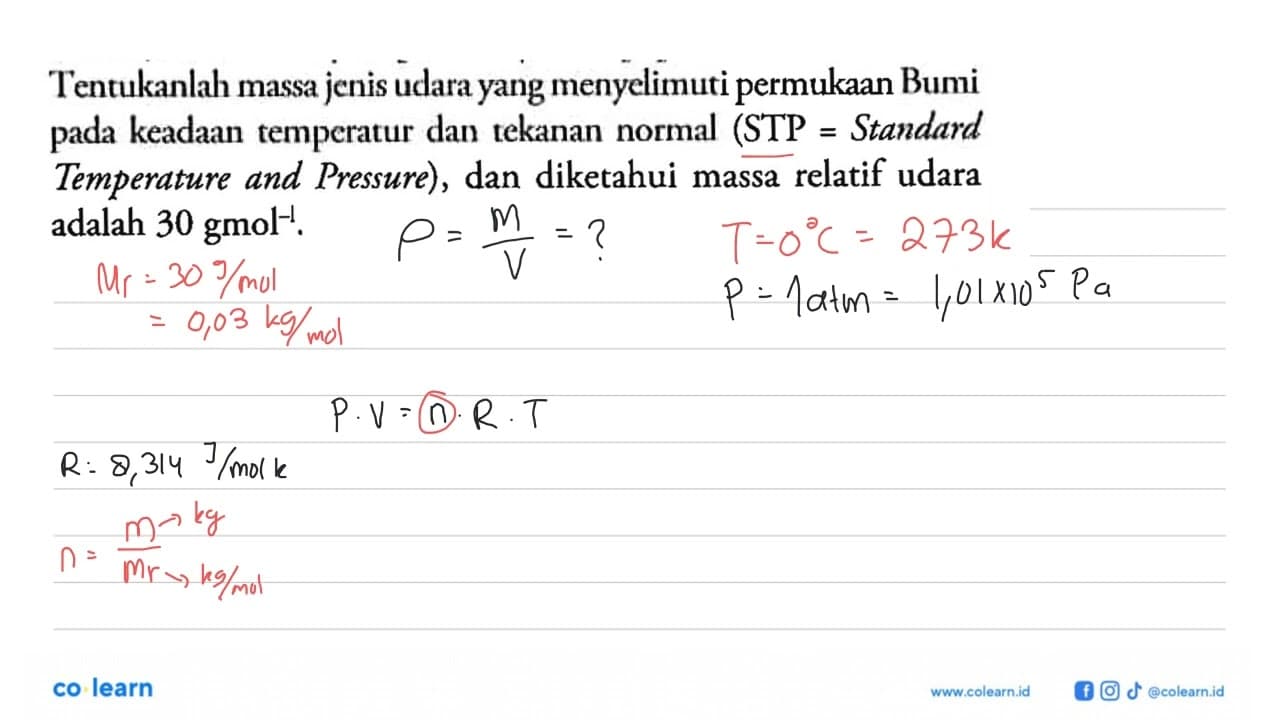 Tentukanlah massa jenis udara yang menyelimuti permukaan Bumi
pada keadaan temperatur dan tekanan normal (STP = Standard
Temperature and Pressure), dan diketahui massa relatif udara
adalah 30 gmol⁻¹.
ρ = m/V = ?
T = 0°C = 273k
Mr = 30 g/mol
= 0,03 kg/mol
P = 1 atm = 1,01 x 10⁵ Pa
P . V = n . R . T
R = 8,314 J/mol k
n = m → kg
Mr → kg/mol
co learn
www.colearn.id
@colearn.id